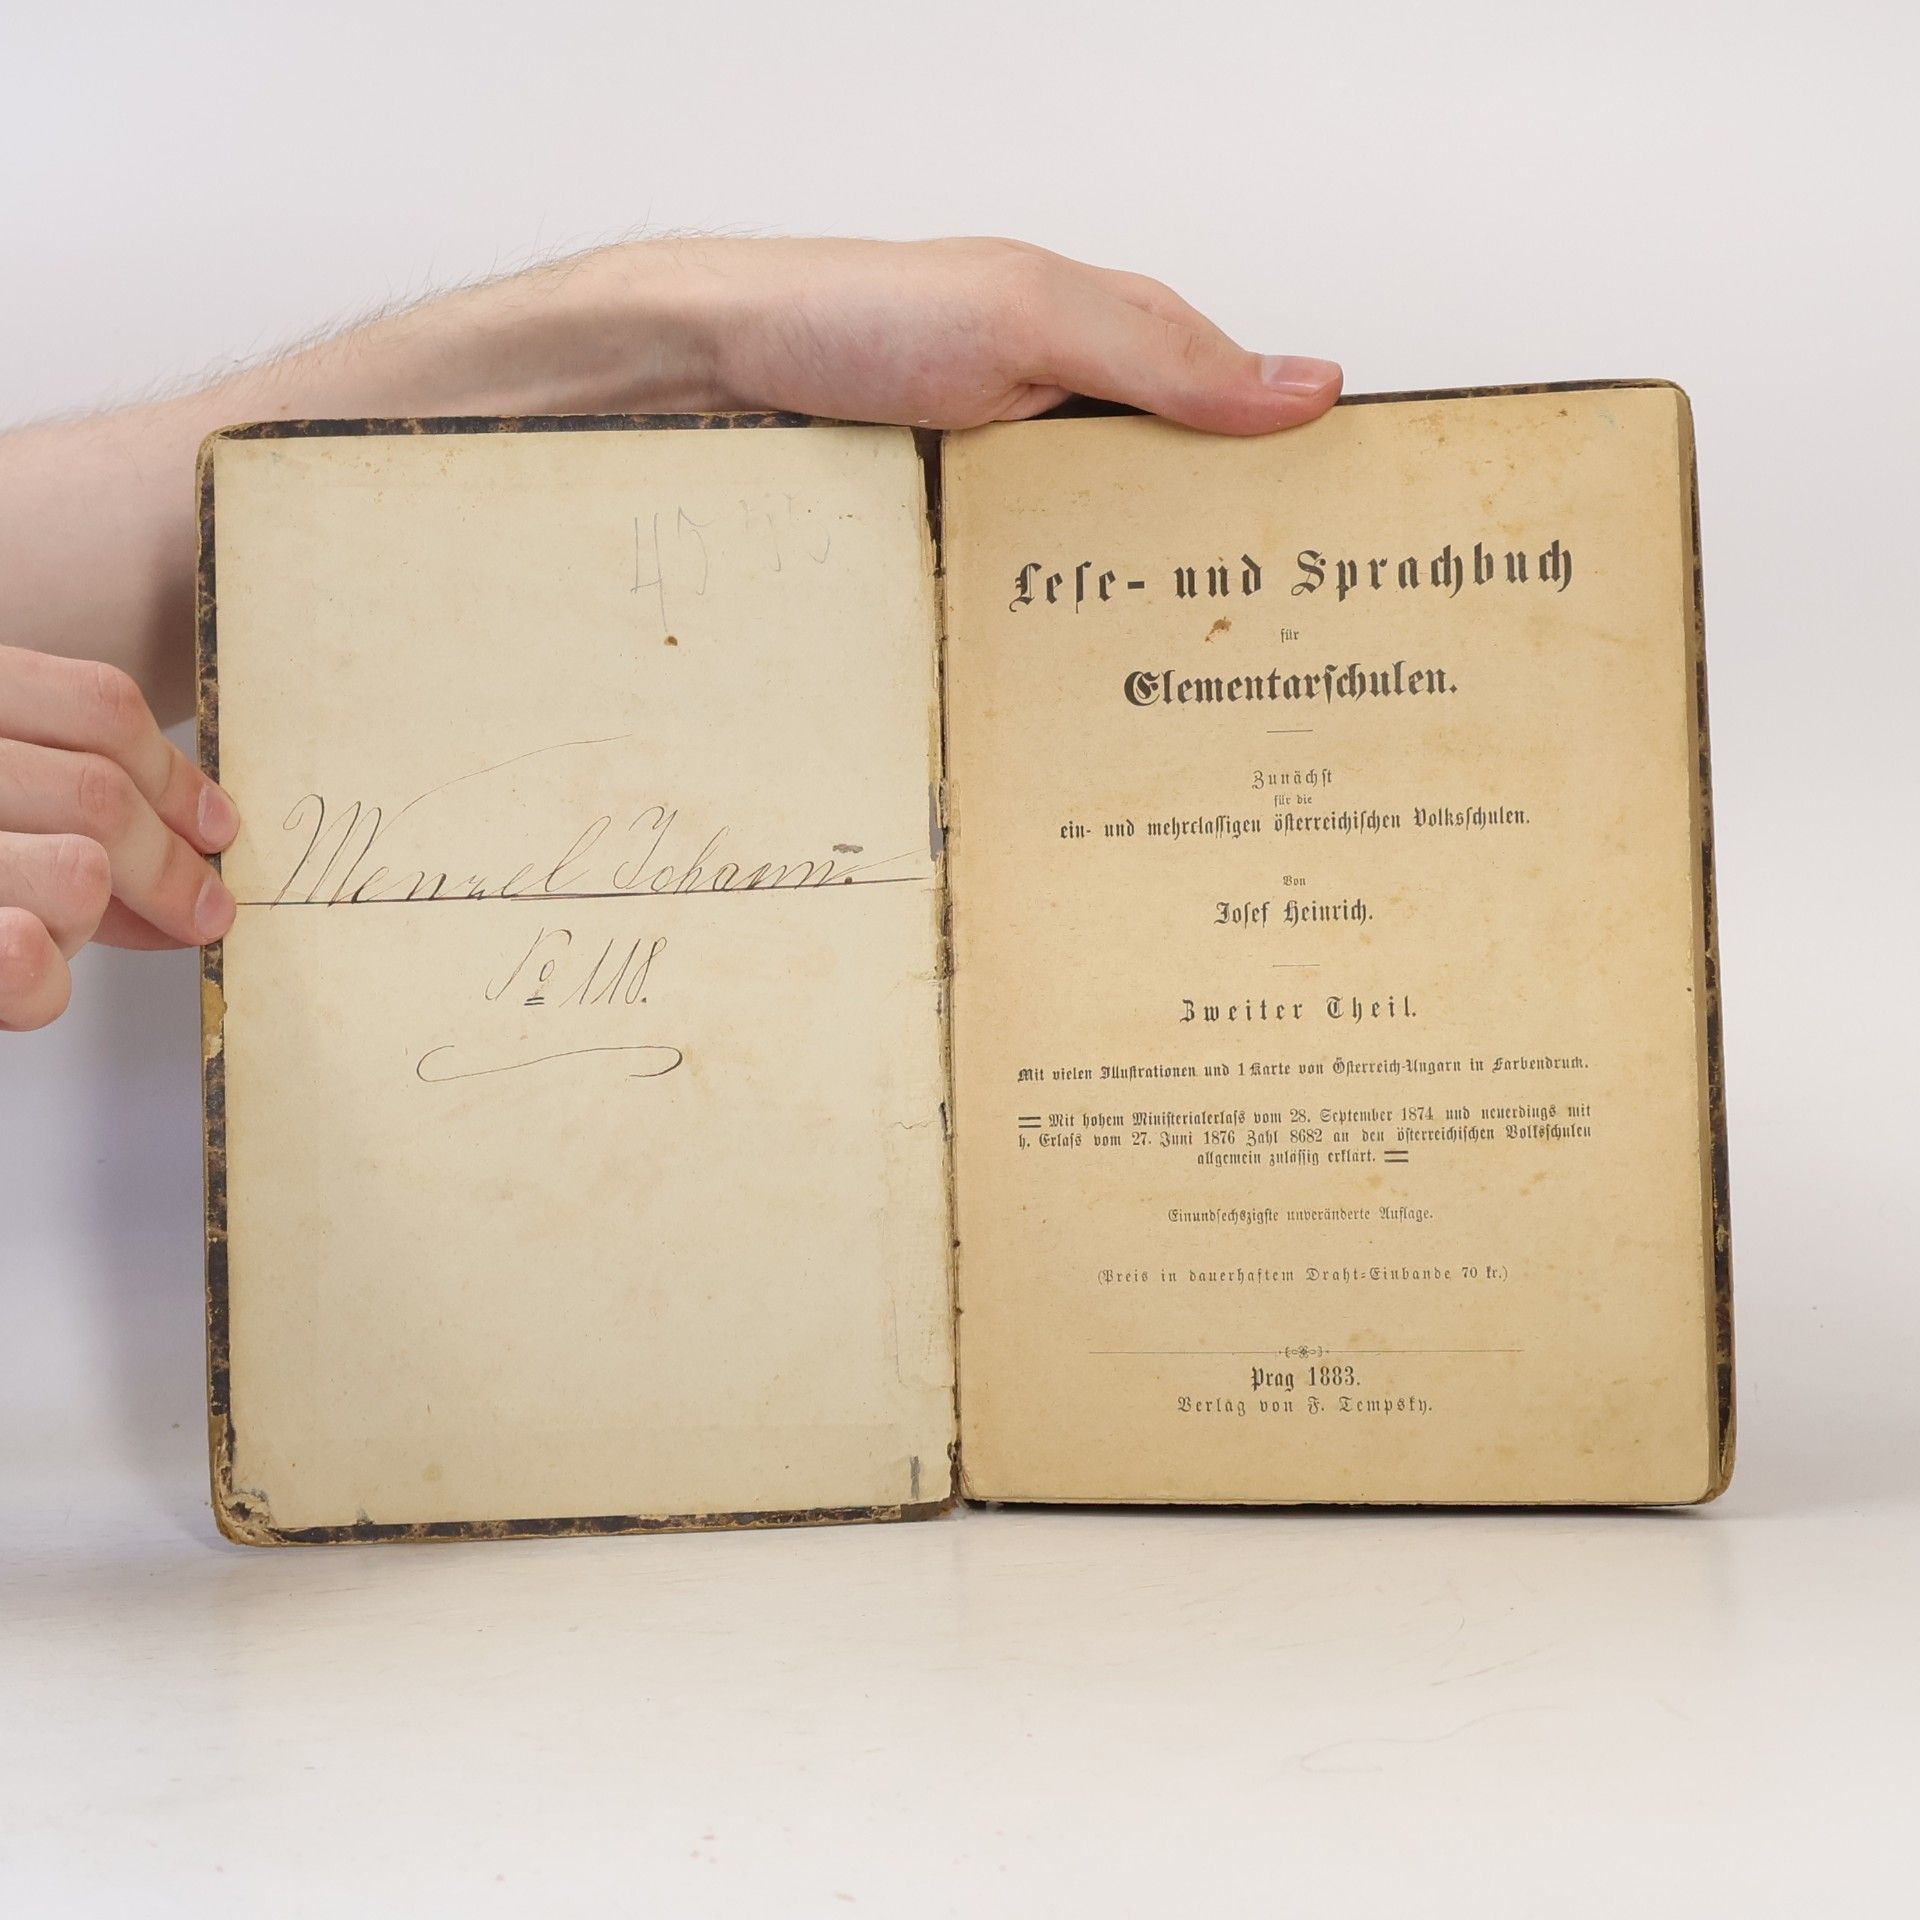 Menzel Johann.
No 118.
Lese- und Sprachbuch
für
Elementarschulen.
Zunächst
für die
ein- und mehrclassigen österreichischen Volksschulen.
Von
Josef Heinrich.
Zweiter Theil.
Mit vielen Illustrationen und 1 Karte von Österreich-Ungarn in Farbendruck.
Mit hohem Ministerialerlass vom 28. September 1874 und neuerdings mit
h. Erlass vom 27. Juni 1876 Zahl 8682 an den österreichischen Volksschulen
allgemein zulässig erklärt.
Einundsechszigste unveränderte Auflage.
(Preis in dauerhaftem Draht-Einbande 70 kr.)
Prag 1883.
Verlag von F. Tempsky.